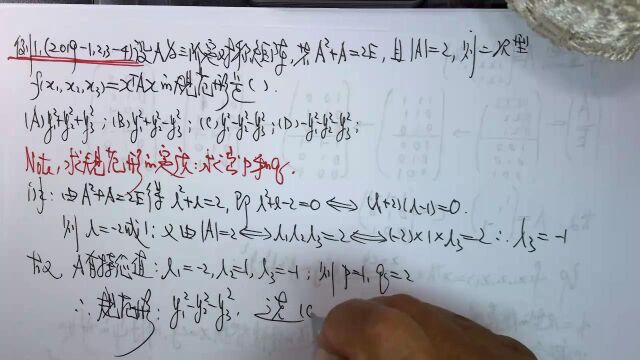 例1,(2019-1,2,3-4)设A为三阶实对称矩阵,若A²+A=2E,且|A|=2,则二次型
f(x₁,x₂,x₃)=xᵀAx的规范形是( ).
(A)y₁²+y₂²+y₃²; (B)y₁²+y₂²-y₃²; (C)y₁²-y₂²-y₃²; (D)-y₁²-y₂²-y₃²;
Note,求规范形的实质:求出p和q.
详:由A²+A=2E得λ²+λ=2,即λ²+λ-2=0⟺(λ+2)(λ-1)=0.
则λ=-2或1;又由|A|=2⟺λ₁λ₂λ₃=2⟺(-2)×1×λ₃=2∴λ₃=-1
故A有特征值:λ₁=-2,λ₂=1,λ₃=-1;则p=1,q=2
∴规范形:y₁²-y₂²-y₃². 选(C